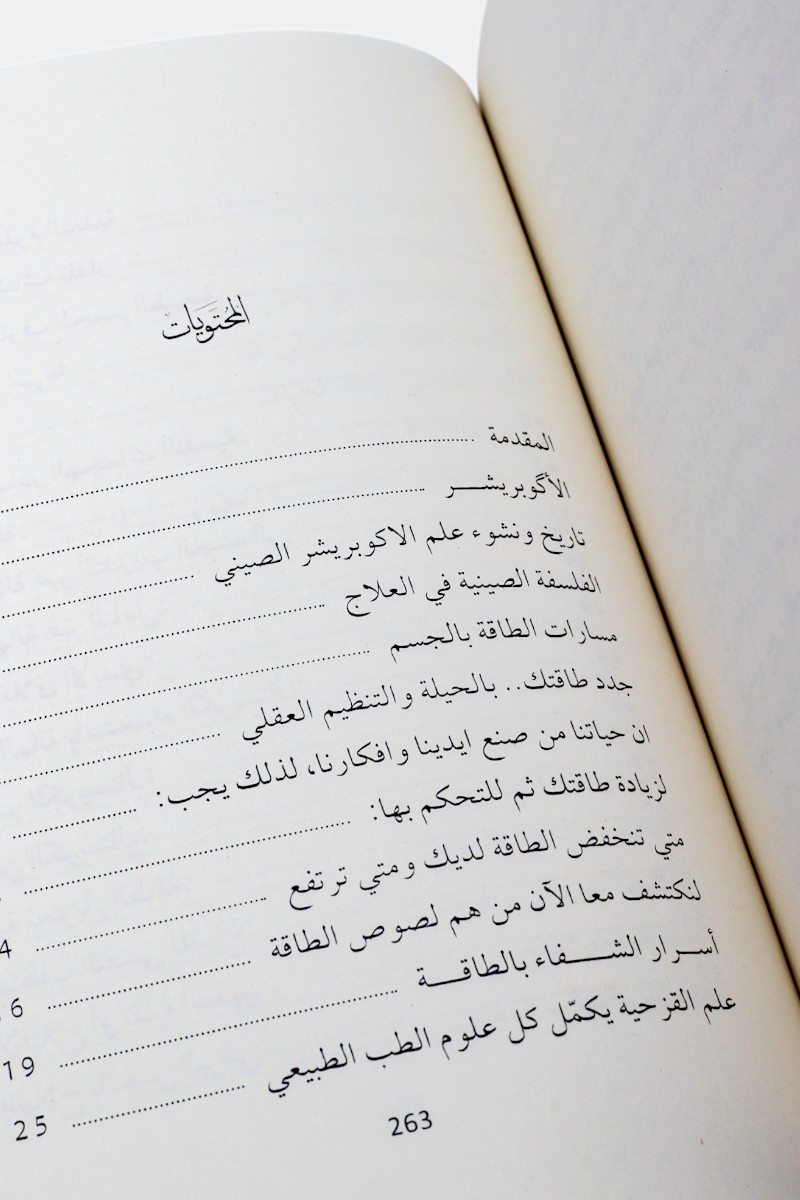 المحتويات
المقدمة ........................
الأكوبريشـــر ........................
تاريخ ونشوء علم الاكوبريشر الصيني ........................
الفلسفة الصينية في العلاج ........................
مسارات الطاقة بالجسم ........................
جدد طاقتك.. بالحيلة والتنظيم العقلي ........................
ان حياتنا من صنع ايدينا وافكارنا، لذلك يجب: ........................
لزيادة طاقتك ثم للتحكم بها: ........................
متي تنخفض الطاقة لديك ومتي ترتفع ........................ 4
لنكتشف معا الآن من هم لصوص الطاقة ........................ 6
أســرار الشـــفاء بالطاقــة ........................ 19
علم القزحية يكمّل كل علوم الطب الطبيعي ........................ 25
263